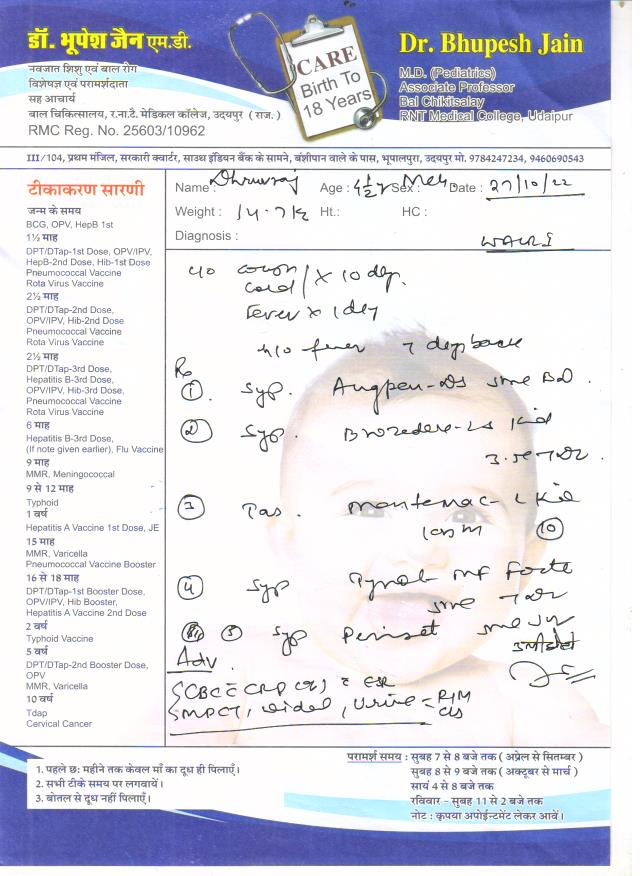 डॉ. भूपेश जैन एम.डी.
नवजात शिशु एवं बाल रोग
विशेषज्ञ एवं परामर्शदाता
सह आचार्य
बाल चिकित्सालय, र.ना.टै. मेडिकल कॉलेज, उदयपुर ( राज.)
RMC Reg. No. 25603/10962
CARE
Birth To
18 Years
Dr. Bhupesh Jain
M.D. (Pediatrics)
Associate Professor
Bal Chikitsalay
RNT Medical College, Udaipur
III/104, प्रथम मंजिल, सरकारी क्वार्टर, साउथ इंडियन बैंक के सामने, बंशीपान वाले के पास, भूपालपुरा, उदयपुर मो. 9784247234, 9460690543
टीकाकरण सारणी
जन्म के समय
BCG, OPV, HepB 1st
1½ माह
DPT/DTap-1st Dose, OPV/IPV,
HepB-2nd Dose, Hib-1st Dose
Pneumococcal Vaccine
Rota Virus Vaccine
2½ माह
DPT/DTap-2nd Dose,
OPV/IPV, Hib-2nd Dose
Pneumococcal Vaccine
Rota Virus Vaccine
2½ माह
DPT/DTap-3rd Dose,
Hepatitis B-3rd Dose,
OPV/IPV, Hib-3rd Dose,
Pneumococcal Vaccine
Rota Virus Vaccine
6 माह
Hepatitis B-3rd Dose,
(If note given earlier), Flu Vaccine
9 माह
MMR, Meningococcal
9 से 12 माह
Typhoid
1 वर्ष
Hepatitis A Vaccine 1st Dose, JE
15 माह
MMR, Varicella
Pneumococcal Vaccine Booster
16 से 18 माह
DPT/DTap-1st Booster Dose,
OPV/IPV, Hib Booster,
Hepatitis A Vaccine 2nd Dose
2 वर्ष
Typhoid Vaccine
5 वर्ष
DPT/DTap-2nd Booster Dose,
OPV
MMR, Varicella
10 वर्ष
Tdap
Cervical Cancer
Name : Dhruvraj Age : 4½ yr Sex : Male Date : 27/10/22
Weight : 14.7 kg Ht.: HC :
Diagnosis : WALRI
c/o cough
cold / x 10 days
Fever x 1 day
h/o fever 7 days back
Rx
① Syp. Augpen-DS 5ml BD.
② Syp. Brozedex-LS Kid
3.5ml TDS.
③ Tab. Montemac-L Kid
⑩
④ Syp MF Forte
5ml TDS
⑤ Syp Periset 5ml
Adv.
CBC CRP ESR
MPCT, Widal, Urine R/M
C/S
1. पहले छ: महीने तक केवल माँ का दूध ही पिलाएँ।
2. सभी टीके समय पर लगवायें।
3. बोतल से दूध नहीं पिलाएँ।
परामर्श समय : सुबह 7 से 8 बजे तक ( अप्रेल से सितम्बर )
सुबह 8 से 9 बजे तक ( अक्टूबर से मार्च )
सायं 4 से 8 बजे तक
रविवार - सुबह 11 से 2 बजे तक
नोट : कृपया अपोईन्टमेंट लेकर आवें।